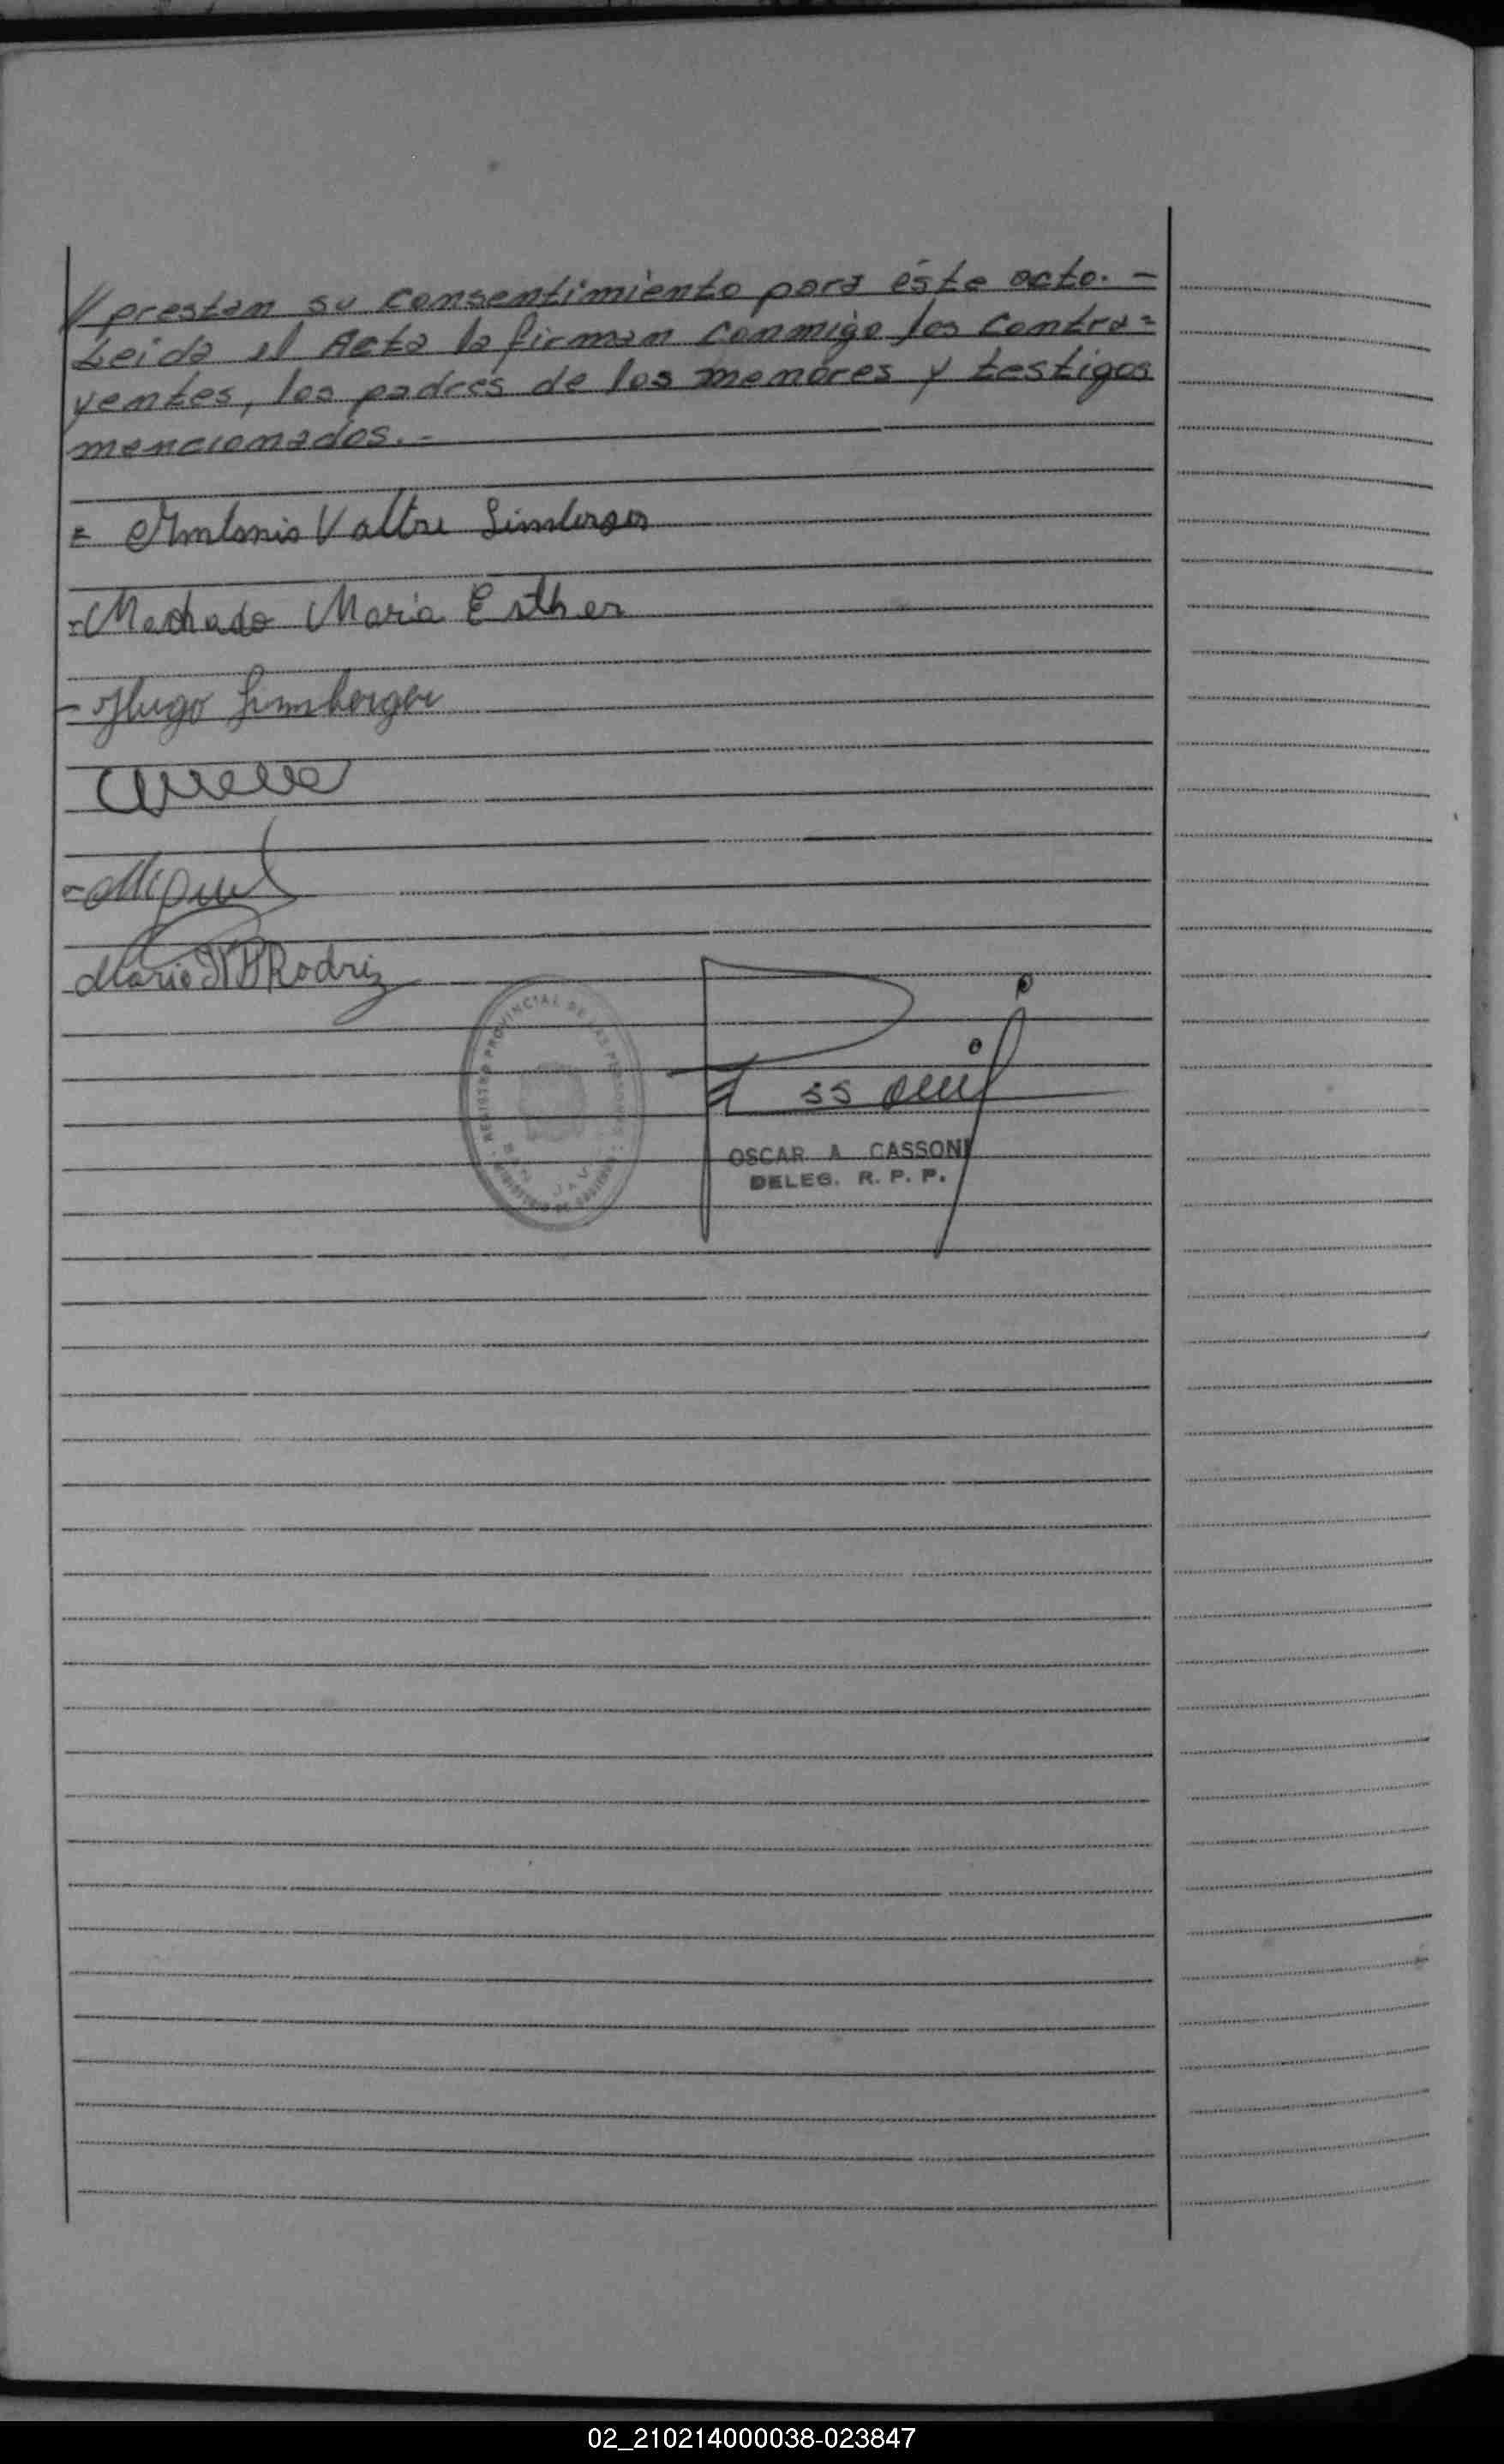 // prestan su consentimiento para éste acto. —
Leida el Acta la firman conmigo los contra=
yentes, los padres de los menores y testigos
mencionados.-
= Antonio Valtre Limberger
- Machado Maria Esther
- Hugo Limberger
- Miguel
Mario Rodriz
REGISTRO PROVINCIAL DE LAS PERSONAS
OSCAR A CASSONI
DELEG. R. P. P.
02_210214000038-023847